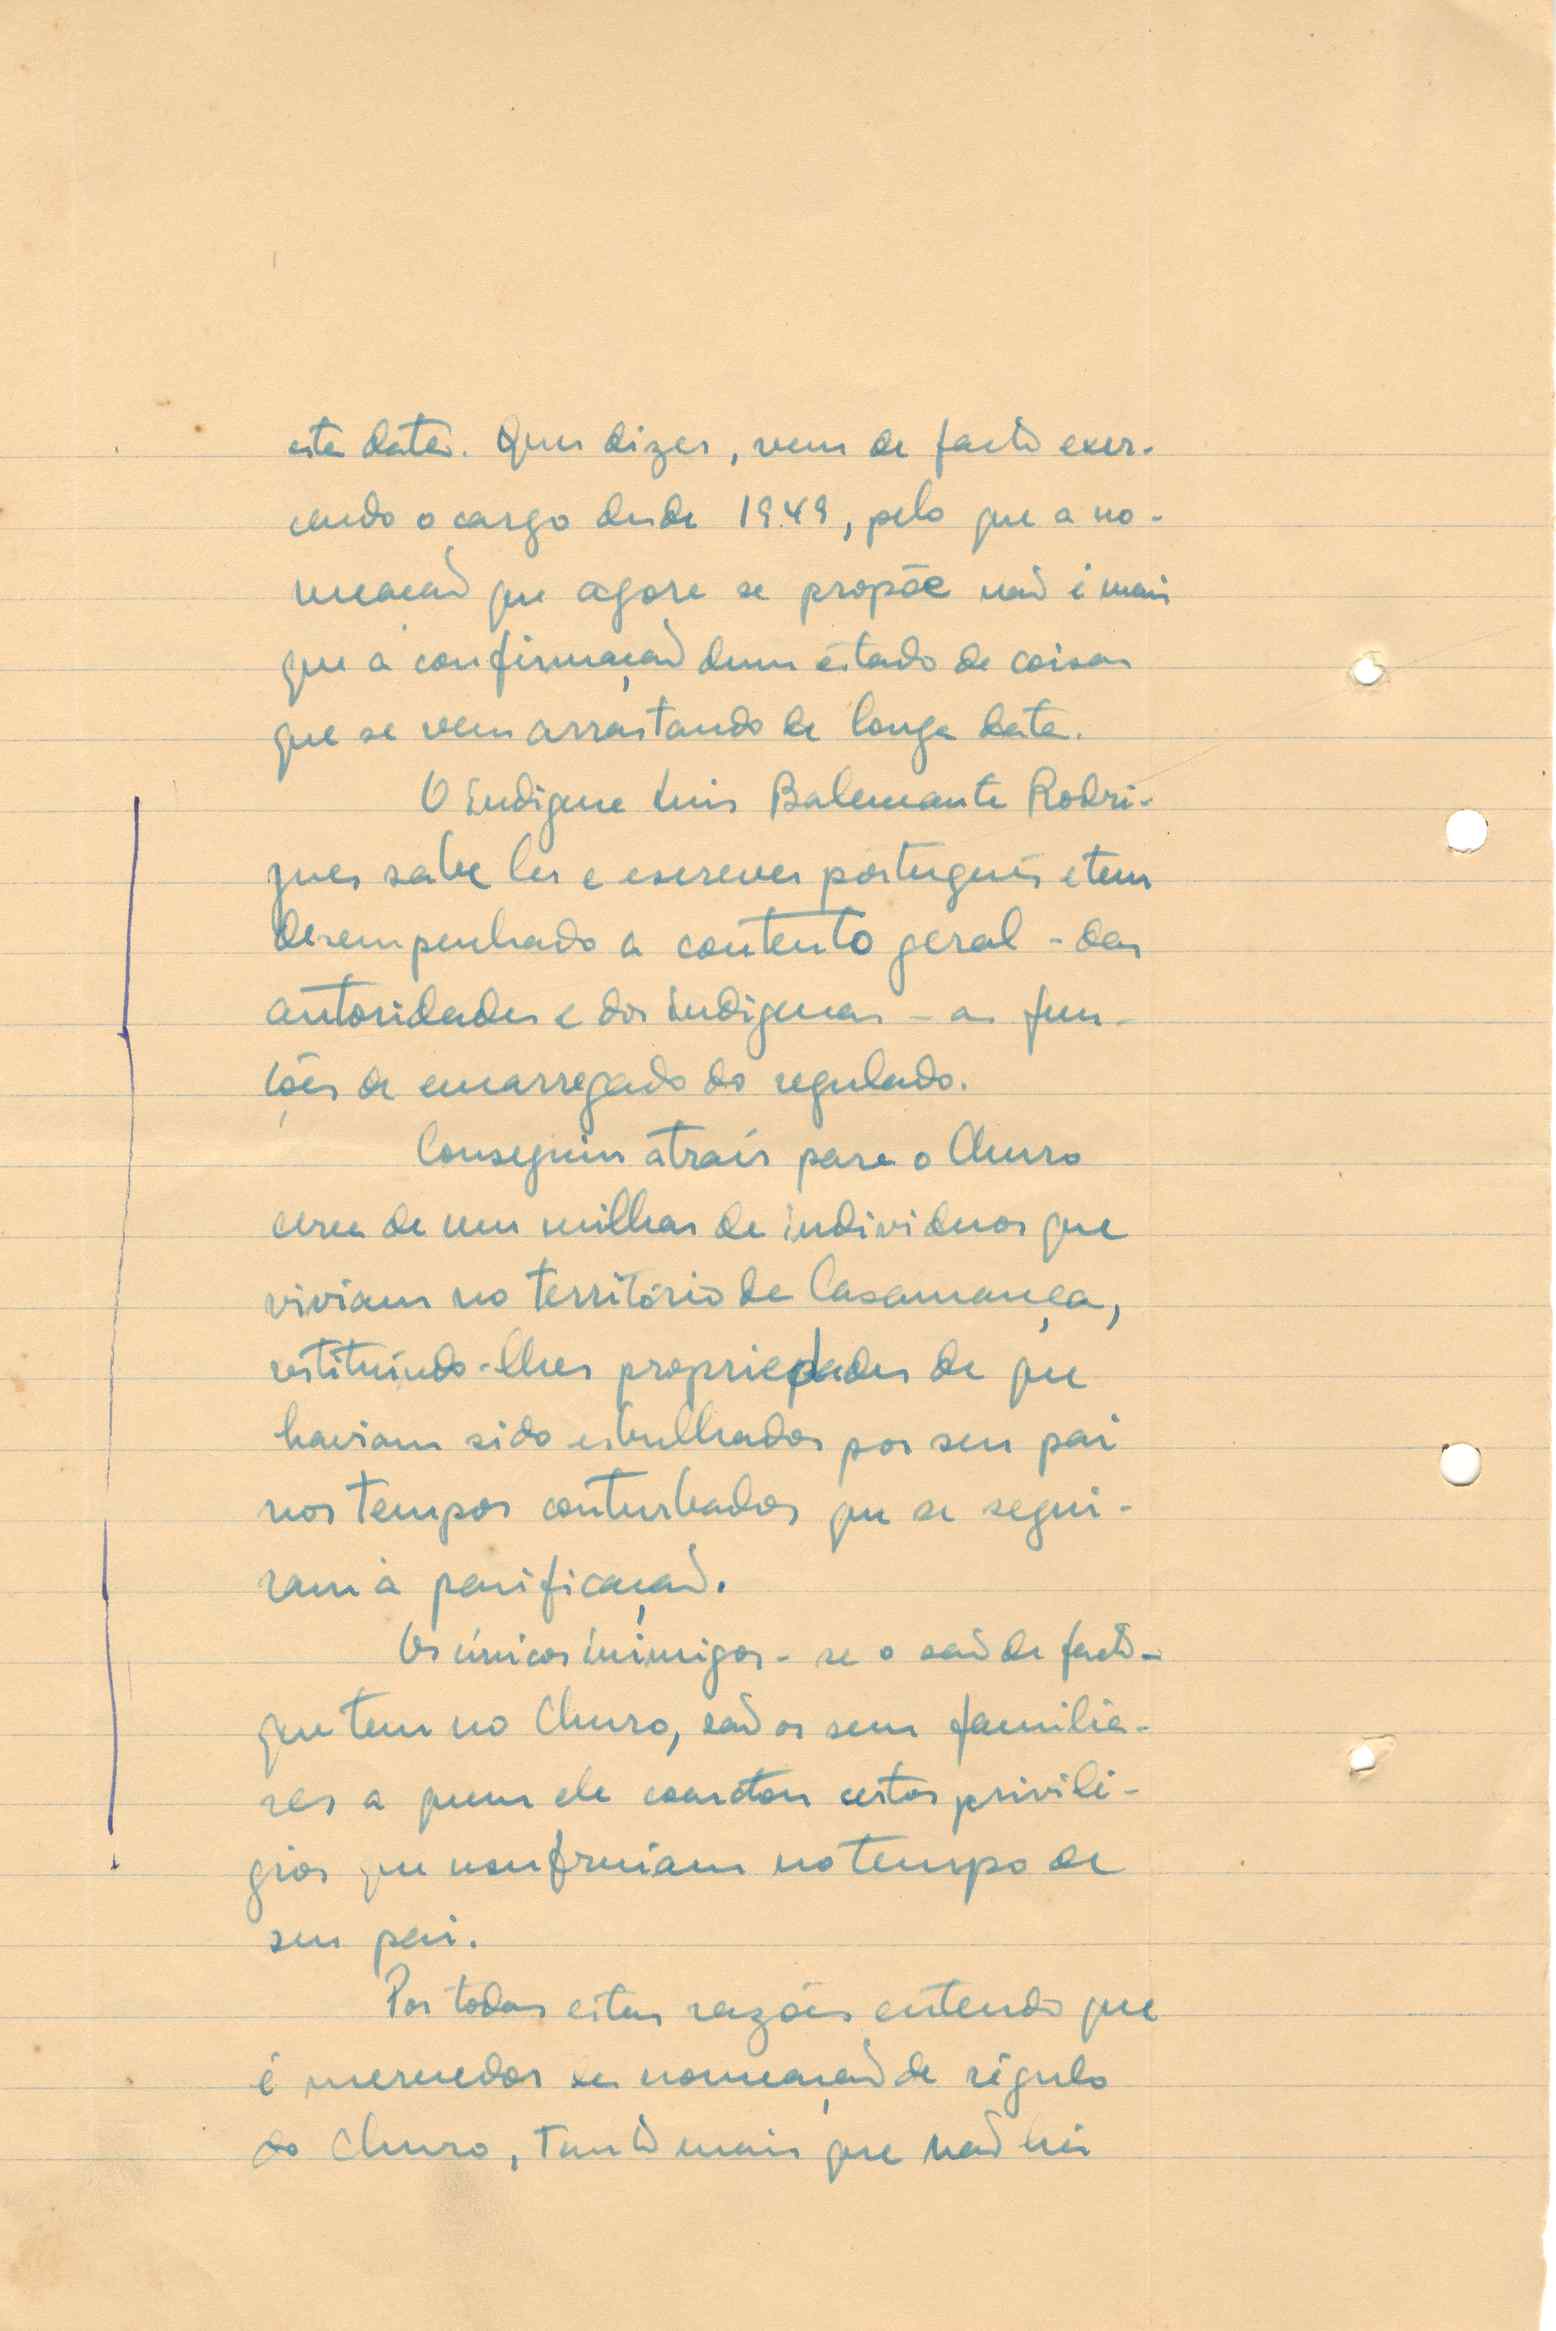 esta data. Quer dizer, vem de facto exer-
cendo o cargo desde 1949, pelo que a no-
meação que agora se propõe não é mais
que a confirmação dum estado de coisas
que se vem arrastando de longa data.
O indígena Luis Balemante Rodri-
gues sabe ler e escrever português e tem
desempenhado a contento geral - das
autoridades e dos indígenas - as fun-
ções de encarregado do regulado.
Conseguiu atrair para o Churo
cerca de um milhar de indivíduos que
viviam no território de Casamança,
restituindo-lhes propriedades de que
haviam sido esbulhados por seu pai
nos tempos conturbados que se segui-
ram à pacificação.
Os únicos inimigos - se o são de facto -
que tem no Churo, são os seus familia-
res a quem ele coarctou certos privilé-
gios que usufruiam no tempo de
seu pai.
Por todas estas razões entendo que
é merecedor da nomeação de régulo
do Churo, tanto mais que não há